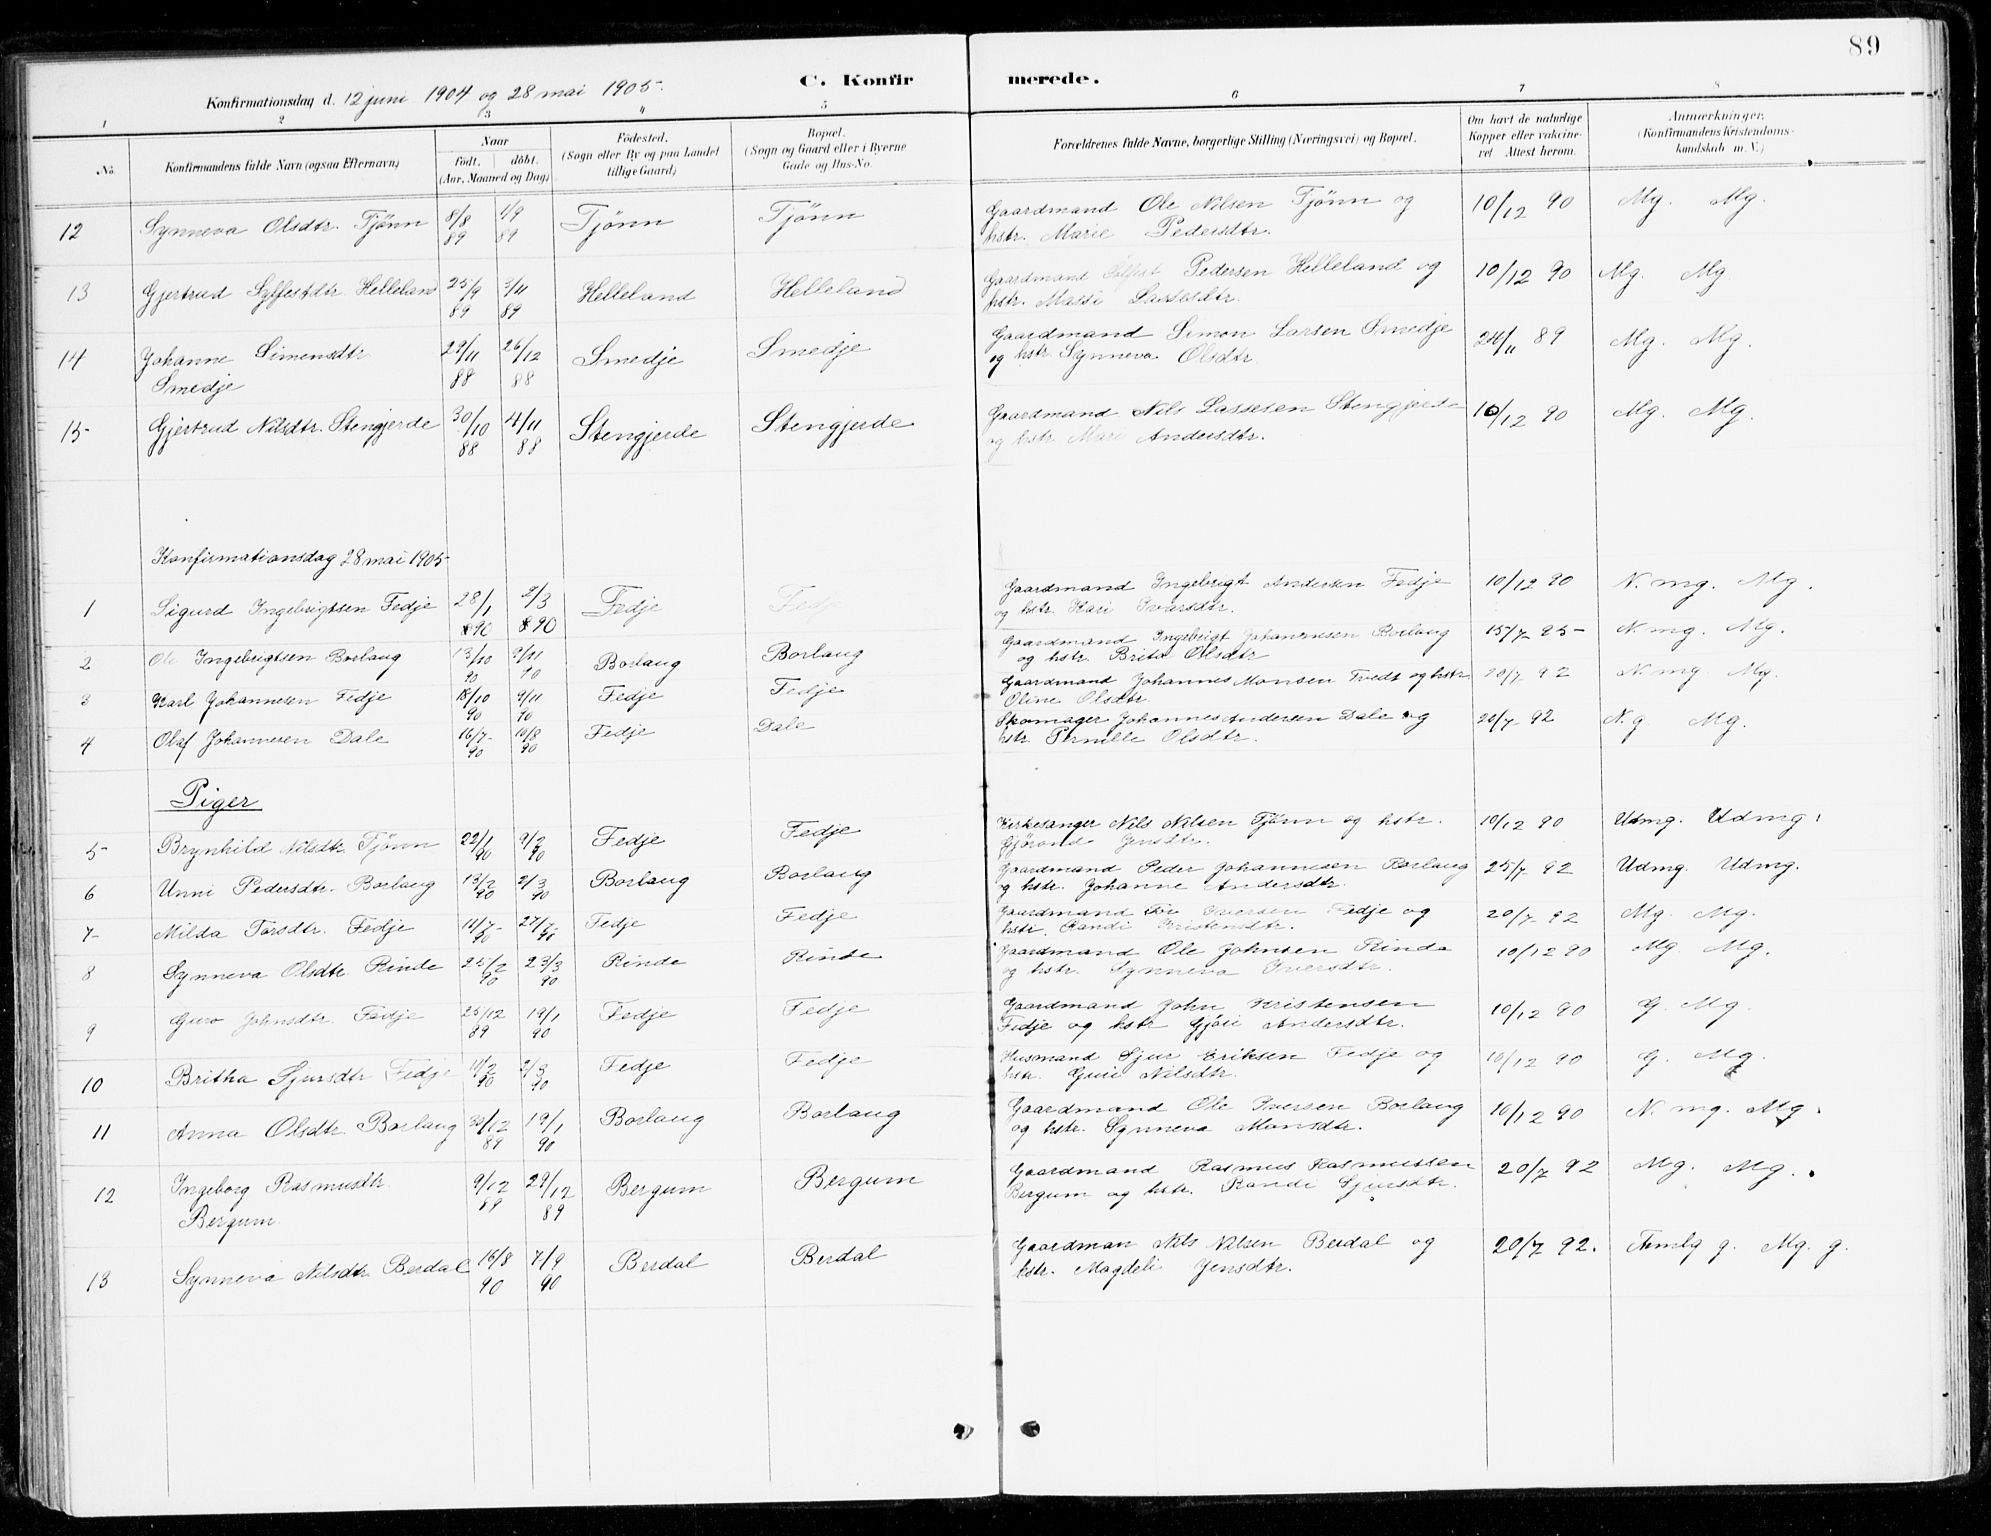 89
C. Konfirmerede.
Konfirmationsdag d. 12 juni 1904 og 28 mai 1905.
1 2 3 4 5 6 7 8
No. Konfirmandens fulde Navn (ogsaa Efternavn) Naar födt. döbt. (Aar, Maaned og Dag) Födested. (Sogn eller By og paa Landet tillige Gaard) Bopæl. (Sogn og Gaard eller i Byerne Gade og Hus-No. Forældrenes fulde Navne, borgerlige Stilling (Næringsvei) og Bopæl. Om havt de naturlige Kopper eller vaccineret. Attest herom. Anmærkninger. (Konfirmandens Kristendomskundskab m. V.)
12 Synneva Olsdtr. Tjönn 8/8 89 1/9 89 Tjönn Tjönn Gaardmand Ole Nilsen Tjönn og hstr. Marie Pedersdtr. 10/12 90 Mg. Mg.
13 Gjertrud Sylfestdtr. Helleland 25/9 89 3/11 89 Helleland Helleland Gaardmand Pedersen Helleland og hstr. Massi Lassesdtr. 10/12 90 Mg. Mg
14 Johanne Simensdtr. Smedje 29/11 88 26/12 88 Smedje Smedje Gaardmand Simon Larsen Smedje og hstr. Synneva Olsdtr. 24/11 89 Mg. Mg.
15 Gjertrud Nilsdtr. Stengjerde 30/10 88 4/11 88 Stengjerde Stengjerde Gaardmand Nils Lassesen Stengjerde og hstr. Mari Andersdtr. 10/12 90 Mg. Mg.
Konfirmationsdag 28 mai 1905
1 Sigurd Ingebrigtsen Fedje 28/1 890 2/3 890 Fedje Fedje Gaardmand Ingebrigt Andersen Fedje og hstr. Kari Ivarsdtr. 10/12 90 N. mg. Mg.
2 Ole Ingebrigtsen Borlaug 13/10 90 9/11 90 Borlaug Borlaug Gaardmand Ingebrigt Johannesen Borlaug og hstr. Brita Olsdtr 15/7 95 N. mg. Mg.
3 Karl Johannesen Fedje 18/10 90 9/11 90 Fedje Fedje Gaardmand Johannes Monsen Tvedt og hstr Oline Olsdtr 20/7 92 N. mg. Mg.
4 Olaf Johannesen Dale 16/7 90 10/8 90 Fedje Dale Skomager Johannes Andersen Dale og hstr. Pernille Olsdtr. 20/7 92 N.g. Mg.
Piger
5 Brynhild Nilsdtr. Tjönn 22/1 90 9/2 90 Fedje Fedje Kirkesanger Nils Nilsen Tjönn og hstr. Gjörond Jensdtr. 10/12 90 Udmg. Udmg.
6 Unni Pedersdtr. Borlaug 13/2 90 2/3 90 Borlaug Borlaug Gaardmand Peder Johannesen Borlaug og hstr. Johanne Andersdtr. 25/7 92 Udmg. Udmg.
7 Milda Torsdtr. Fedje 11/7 90 27/7 90 Fedje Fedje Gaardmand Tor Iversen Fedje og hstr. Randi Kristensdtr. 20/7 92 Mg. Mg.
8 Synneva Olsdtr Rinde 25/2 90 23/3 90 Rinde Rinde Gaardmand Ole Johnsen Rinde og hstr. Synneva Iversdtr. 10/12 90 Mg. Mg.
9 Guro Johnsdtr. Fedje 25/12 89 19/1 90 Fedje Fedje Gaardmand John Kristensen Fedje og hstr Gjöri Andersdtr. 10/12 90 G. Mg.
10 Britha Sjursdtr Fedje 11/2 90 2/3 90 Fedje Fedje Husmand Sjur Eriksen Fedje og hstr. Guri Nilsdtr. 10/12 90 G. Mg.
11 Anna Olsdtr. Borlaug 30/12 89 19/1 90 Borlaug Borlaug Gaardmand Ole Iversen Borlaug og hstr. Synneva Monsdtr. 10/12 90 N. mg. Mg.
12 Ingeborg Rasmusdtr. Bergum. 9/12 89 29/12 89 Bergum Bergum Gaardmand Rasmus Rasmussen Bergum og hstr. Randi Sjursdtr. 20/7 92 Mg. Mg.
13 Synneva Nilsdtr Berdal 16/8 90 7/9 90 Berdal Berdal Gaardman Nils Nilsen Berdal og hstr. Magdeli Jensdtr. 20/7 92. g. Mg. g.